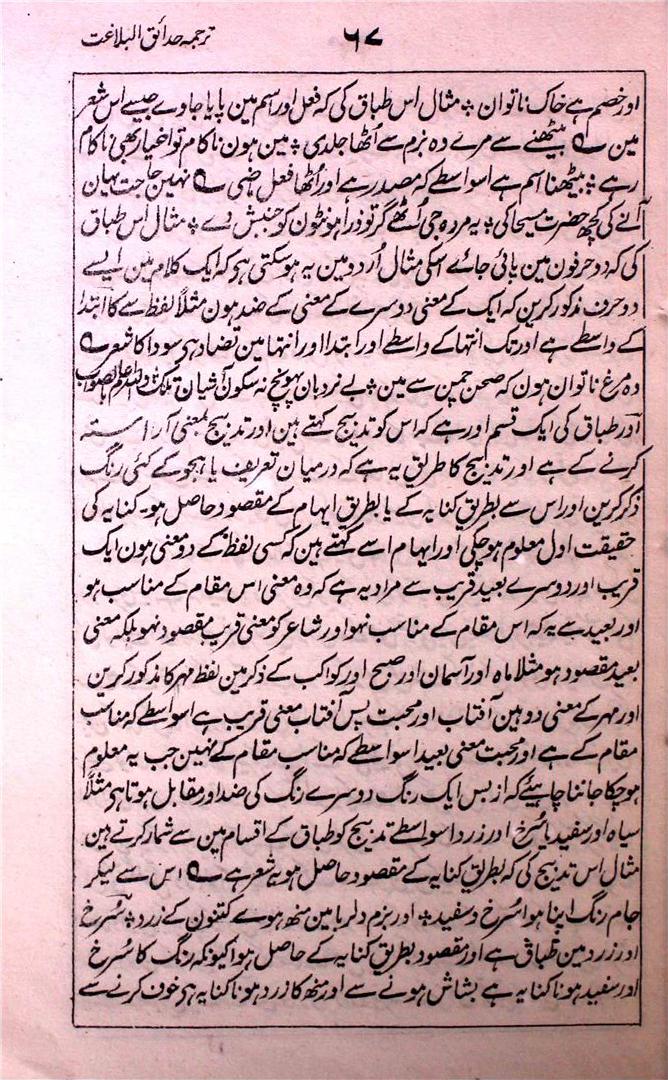 ترجمہ حدائق البلاغت
۶۷
اور خصم ہے خاک ناتوان ؞ مثال اس طباق کی کہ فعل اور اسم مین پایا جاوے جیسے اس شعر
مین ؎ بیٹھنے سے مرے وہ بزم سے اُٹھا جلدی ؞ مین ہون ناکام تو اخیار بھی ناکام
رہے ؞ بیٹھنا اسم ہے اسواسطے کہ مصدر ہے اور اُٹھا فعل ضی ؎ نہین حاجت یہان
آنے کی کچھ حضرت مسیحا کی ؞ یہ مردہ جی اُٹھے گر تو ذرا ہونٹون کو جنبش دے ؞ مثال اس طباق
کی کہ دو حرفون مین پائی جائے اسکی مثال اُردو مین یہ ہوسکتی ہی کہ ایک کلام مین ایسے
دو حرف مذکور کرین کہ ایک کے معنی دوسرے کے معنی کے ضد ہون مثلاً لفظ سے کا ابتدا
کے واسطے ہے اور تک انتہا کے واسطے اور ابتدا اور انتہا مین تضاد ہی سودا کا شعر ؎
وہ مرغ ناتوان ہون کہ صحن چمن سے مین ؞ بے نردبان پہونچ نہ سکون آشیان تلک واللہ اعلم بالصواب
اور طباق کی ایک قسم اور ہے کہ اس کو تدبیج کہتے ہین اور تدبیج بمعنی آراستہ
کرنے کے ہے اور تدبیج کا طریق یہ ہے کہ درمیان تعریف یا ہجو کے کئی رنگ
ذکر کرین اور اس سے بطریق کنایہ کے یا بطریق ایہام کے مقصود حاصل ہو۔ کنایہ کی
حقیقت اول معلوم ہوچکی اور ایہام اسے کہتے ہین کہ کسی لفظ کے دو معنی ہون ایک
قریب اور دوسرے بعید قریب سے مراد یہ ہے کہ وہ معنی اس مقام کے مناسب ہو
اور بعید سے یہ کہ اس مقام کے مناسب نہو اور شاعر کو معنی قریب مقصود نہو بلکہ معنی
بعید مقصود ہو مثلا ماہ اور آسمان اور صبح اور کواکب کے ذکر مین لفظ مہر کا مذکور کرین
اور مہر کے معنی دو ہین آفتاب اور محبت پس آفتاب معنی قریب ہے اسواسطے کہ مناسب
مقام کے ہے اور محبت معنی بعید اسواسطے کہ مناسب مقام کے نہین جب یہ معلوم
ہوچکا جاننا چاہیئے کہ از بس ایک رنگ دوسرے رنگ کی ضد اور مقابل ہوتا ہی مثلاً
سیاہ اور سفید یا سُرخ اور زرد اسواسطے تدبیج کو طباق کے اقسام مین سے شمار کرتے ہین
مثال اس تدبیج کی کہ بطریق کنایہ کے مقصود حاصل ہو یہ شعر ہے ؎ اس سے لیکر
جام رنگ اپنا ہوا سُرخ و سفید ؞ اور بزم دلربا مین منھ ہوے کتنون کے زرد ؞ سُرخ
اور زرد مین طباق ہے اور مقصود بطریق کنایہ کے حاصل ہوا کیونکہ رنگ کا سُرخ
اور سفید ہونا کنایہ ہے بشاش ہونے سے اور منھ کا زرد ہونا کنایہ ہی خوف کرنے سے